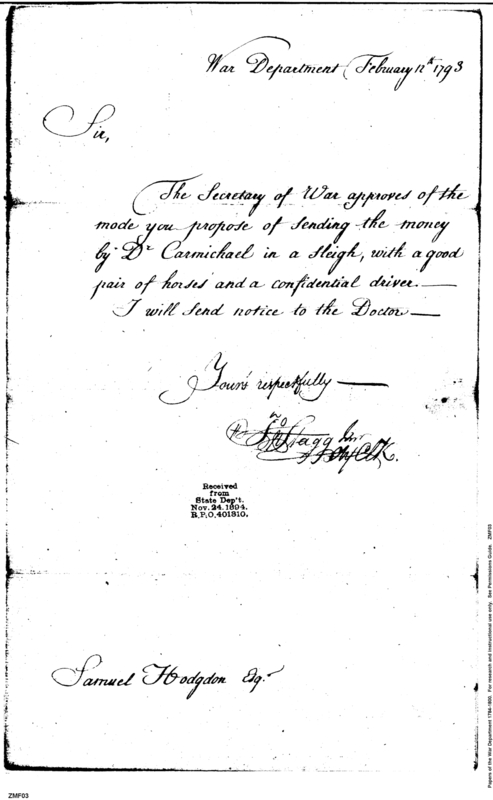 War Department February 12th 1793
Sir,
The Secretary of War approves of the
mode you propose of sending the money
by Dr Carmichael in a sleigh, with a good
pair of horses and a confidential driver.—
I will send notice to the Doctor—
Yours respectfully—
Jno Stagg Junr
Chf Clk.
Received
from
State Dep't.
Nov. 24. 1894.
R.P.O. 401310.
Samuel Hodgdon Esqr
Papers of the War Department 1784-1800. For research and instructional use only. See Permissions Guide. ZMF03
ZMF03